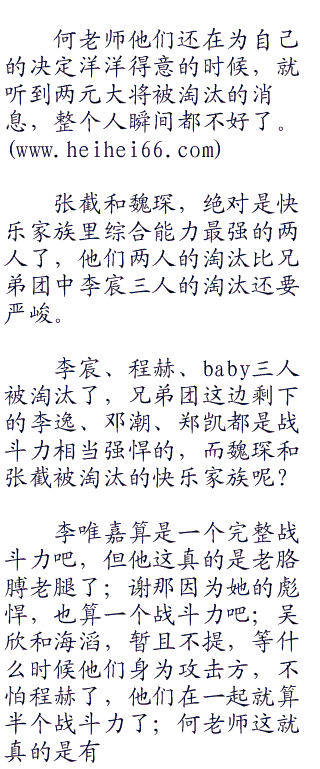 何老师他们还在为自己
的决定洋洋得意的时候，就
听到两元大将被淘汰的消
息，整个人瞬间都不好了。
(www.heihei66.com)
张截和魏琛，绝对是快
乐家族里综合能力最强的两
人了，他们两人的淘汰比兄
弟团中李宸三人的淘汰还要
严峻。
李宸、程赫、baby三人
被淘汰了，兄弟团这边剩下
的李逸、邓潮、郑凯都是战
斗力相当强悍的，而魏琛和
张截被淘汰的快乐家族呢？
李唯嘉算是一个完整战
斗力吧，但他这真的是老胳
膊老腿了；谢那因为她的彪
悍，也算一个战斗力吧；吴
欣和海滔，暂且不提，等什
么时候他们身为攻击方，不
怕程赫了，他们在一起就算
半个战斗力了；何老师这就
真的是有